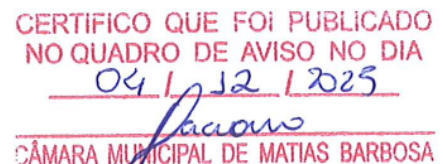 CERTIFICO QUE FOI PUBLICADO
NO QUADRO DE AVISO NO DIA
04 / 12 / 2025
CÂMARA MUNICIPAL DE MATIAS BARBOSA